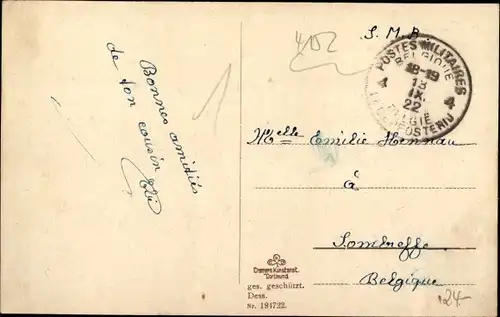 S. M. B.
POSTES MILITAIRES
BELGIQUE
18-19
13
IX
22
4 4
BELGIE
LEGERPOSTERIJ
Bonnes amitiés
de ton cousin
Melle Emilie Hennau
à
Sombreffe
Belgique
Cramers Kunstanst.
Dortmund
ges. geschützt.
Dess.
Nr. 194722.
124-